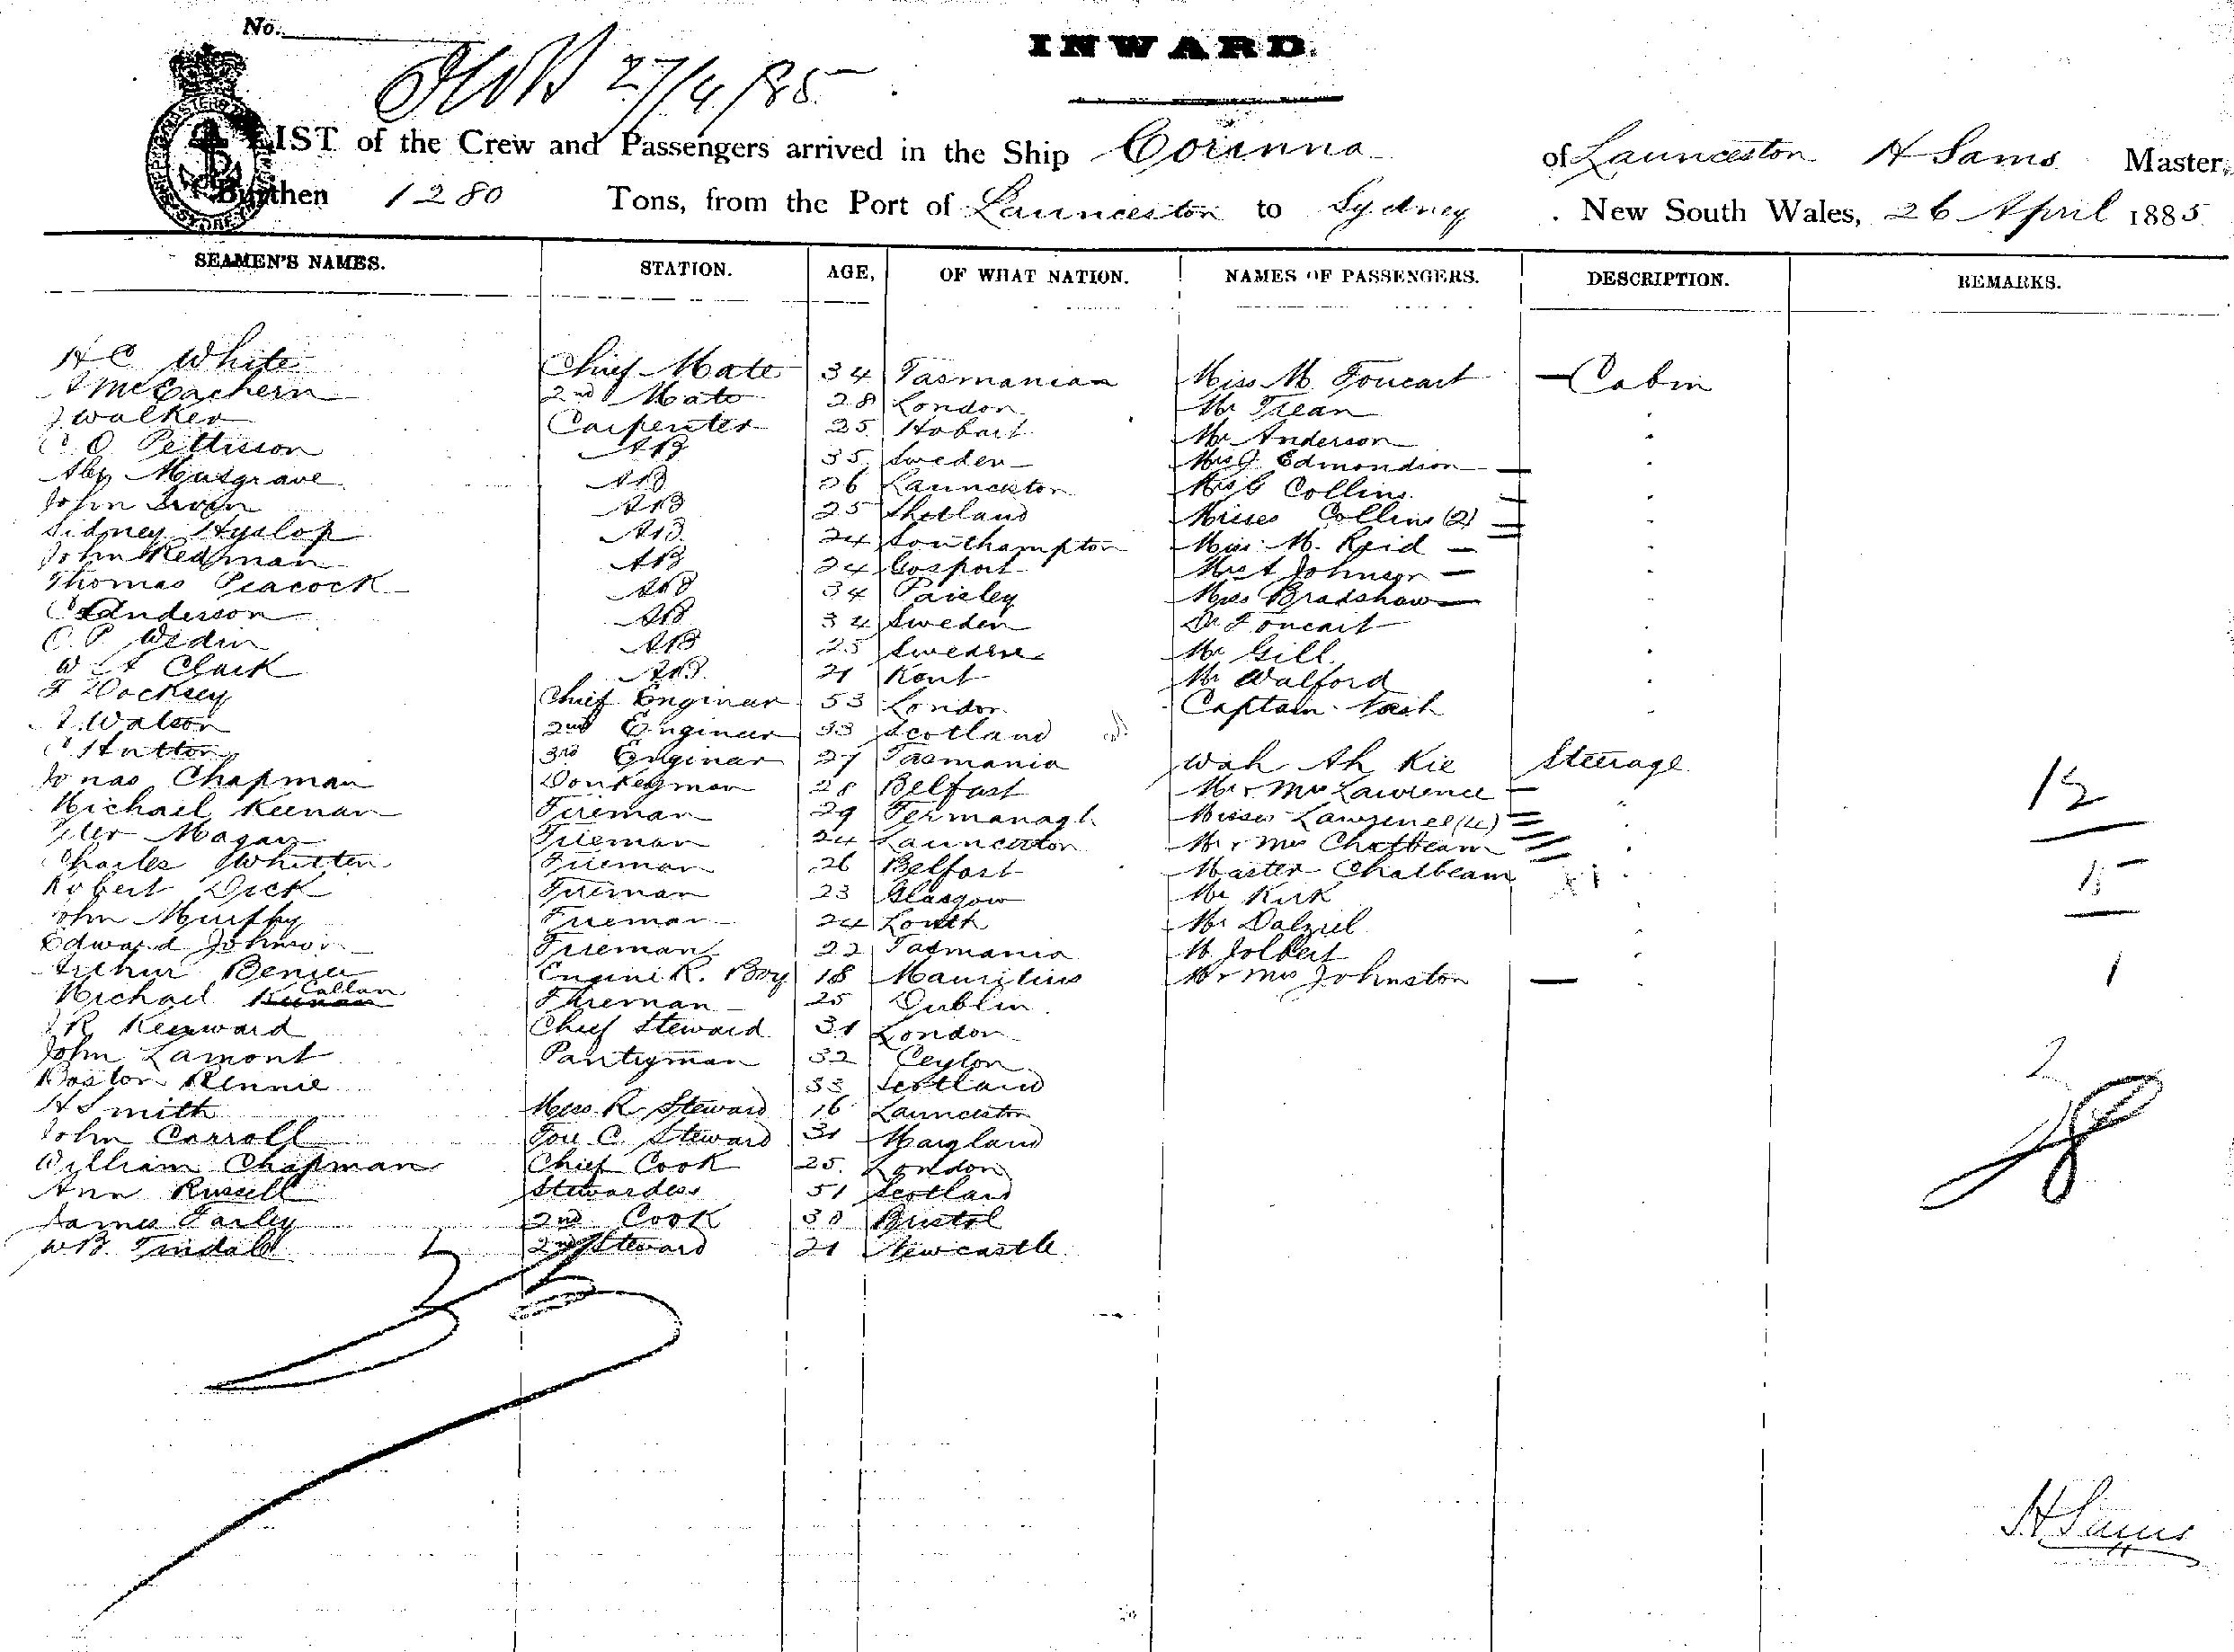 No.
27/4/85
INWARD.
LIST of the Crew and Passengers arrived in the Ship Corinna of Launceston H Sams Master,
Burthen 1280 Tons, from the Port of Launceston to Sydney . New South Wales, 26 April 1885
SEAMEN'S NAMES. STATION. AGE, OF WHAT NATION. NAMES OF PASSENGERS. DESCRIPTION. REMARKS.
H C White Chief Mate 34 Tasmanian Miss M. Foucart Cabin
McEachern 2nd Mate 28 London Mr Trean
J Walker Carpenter 25 Hobart Mr Anderson
C. O. Pettisson AB 35 Sweden Mrs J. Edmondson
Alex Musgrave AB 26 Launceston Mrs G Collins
John Irvin AB 25 Shetland Misses Collins (2)
Sidney Hyslop AB 24 Southampton Miss M. Reid
John Redman AB 24 Gosport Mrs A Johnson
Thomas Peacock AB 34 Paisley Miss Bradshaw
C Anderson AB 34 Sweden Dr Foucart
C. P. Weden AB 25 Sweden Mr Gill
W A Clark AB 21 Kent Mr Walford
F Docksey Chief Enginer 53 London Captain Nash
J. Watson 2nd Enginer 33 Scotland
C Hutton 3rd Enginer 27 Tasmania Wah Ah Kie Steerage
Jonas Chapman Donkeyman 28 Belfast Mr & Mrs Lawrence
Michael Keenan Fireman 29 Fermanagh Misses Lawrence (4)
Peter Magan Fireman 24 Launceston Mr & Mrs Chatbeam
Charles Whitten Fireman 26 Belfast Master Chatbeam
Robert Dick Fireman 23 Glasgow Mr Kirk
John Murphy Fireman 24 Louth Mr Dalziel
Edward Johnson Fireman 22 Tasmania M Jolbert
Arthur Engine R. Boy 18 Mauritius Mr & Mrs Johnston
Michael Callan Fireman 25 Dublin
J R Kenward Chief Steward 31 London
John Lamont Pantryman 32 Ceylon
Rennie 33 Scotland
H Smith Mess R Steward 16 Launceston
John Carroll Fore C. Steward 31 Maryland
William Chapman Chief Cook 25 London
Ann Russell Stewardess 51 Scotland
James Farley 2nd Cook 30 Bristol
W B. Tindall 2nd Steward 21 Newcastle
1
2
H Sams